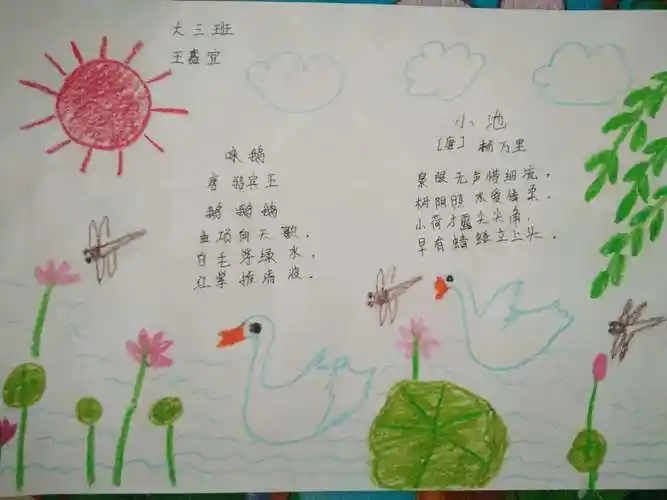 大三班
王宜
咏鹅
唐 骆宾王
鹅 鹅 鹅
曲项向天 歌，
白毛 浮绿 水，
红掌 拨清 波。
小池
[唐] 杨万里
泉眼无声惜细流，
树阴照 水爱晴柔。
小荷才露尖尖角，
早有蜻蜓立上头。